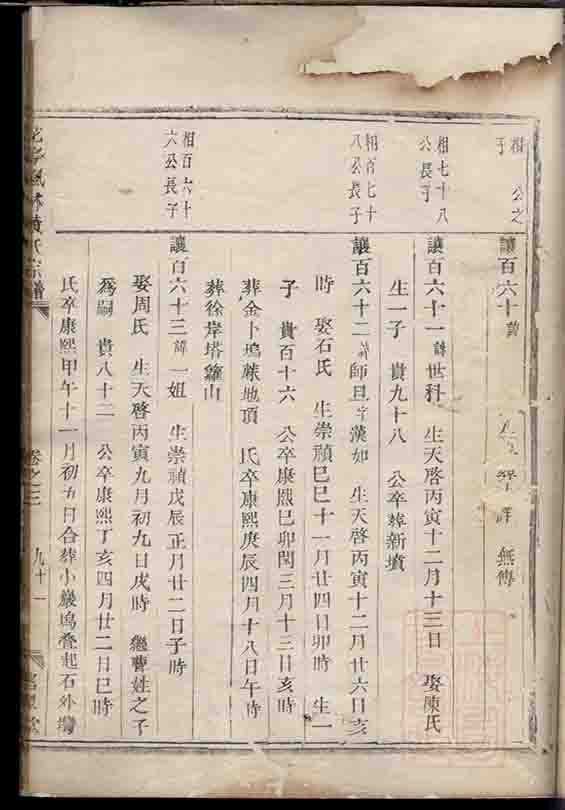 相 公之
子
讓百六十諱 無傳
相七十八
公長子
讓百六十一諱世科 生天啓丙寅十二月十三日 娶陳氏
生一子 貴九十八 公卒葬新墳
相百七十
八公長子
讓百六十二諱師旦字漢如 生天啓丙寅十二月廿六日亥
時 娶石氏 生崇禎巳巳十一月廿四日卯時 生一
子 貴百十六 公卒康熙巳卯閏三月十三日亥時
葬金卜塢蔴地頂 氏卒康熙庚辰四月十八日午時
葬徐岸塔龕山
相百六十
六公長子
讓百六十三諱一姐 生崇禎戊辰正月廿二日子時
娶周氏 生天啓丙寅九月初九日戌時 繼曹姓之子
爲嗣 貴八十二 公卒康熙丁亥四月廿二日巳時
氏卒康熙甲午十一月初九日合葬小巖塢叠起石外塆
黄氏宗譜
卷之三
九十一